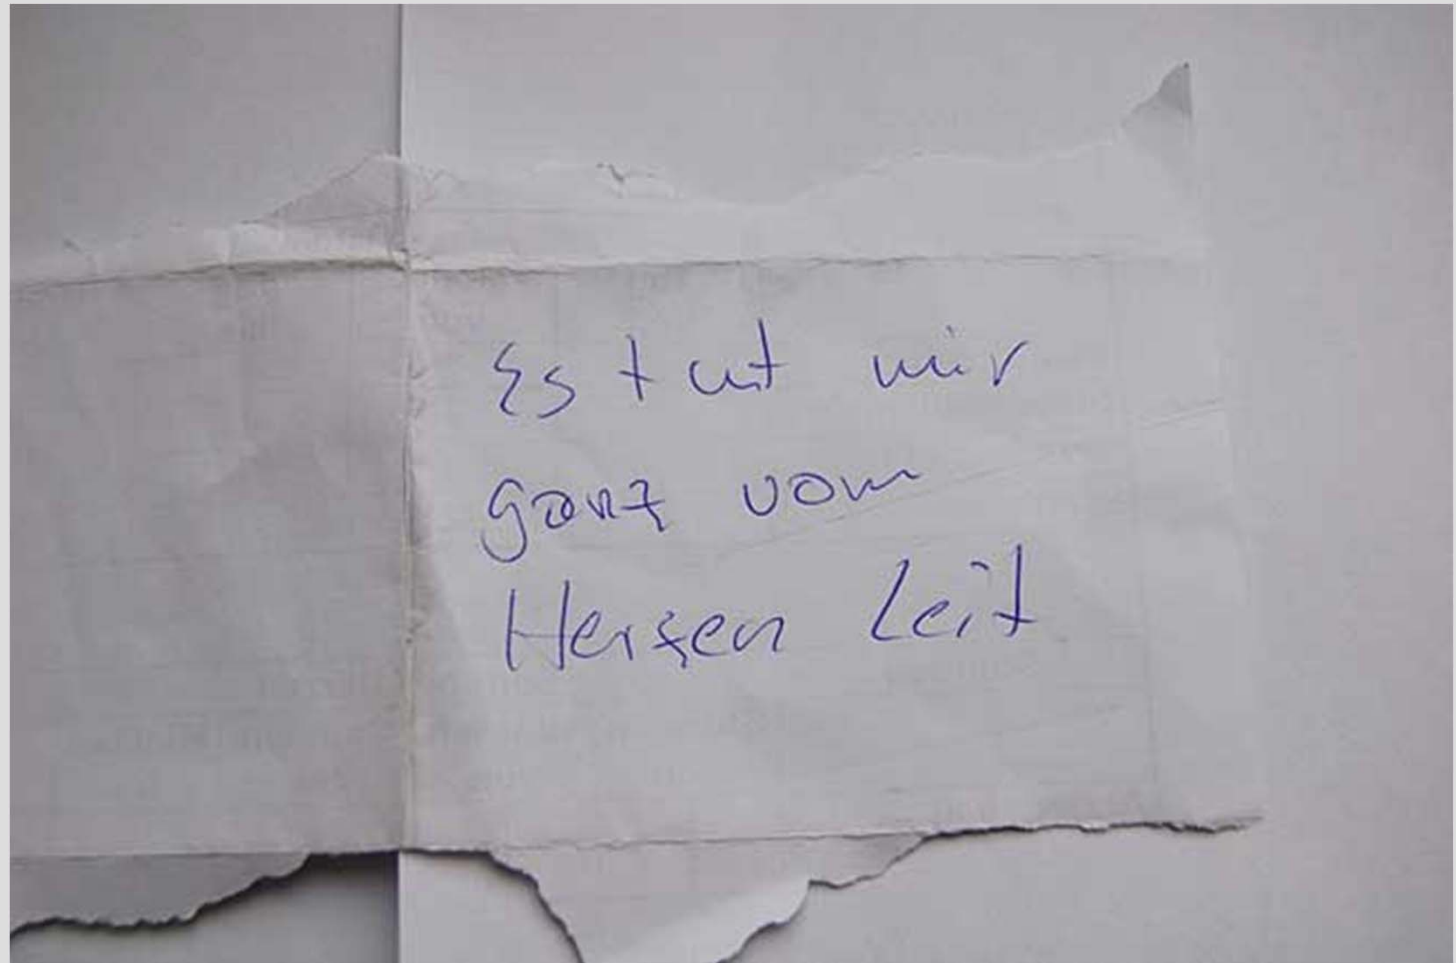 Es tut mir
ganz vom
Herzen Leit